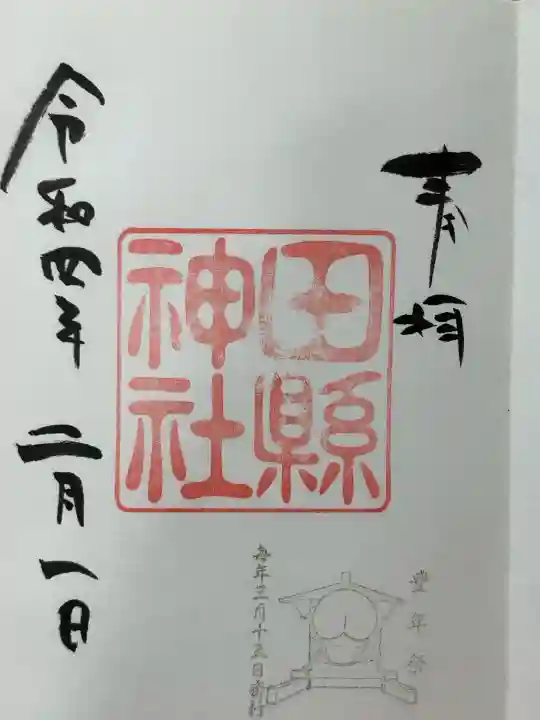 奉拝
田縣
神社
令和四年 二月一日
豊年祭
毎年三月十五日斎行